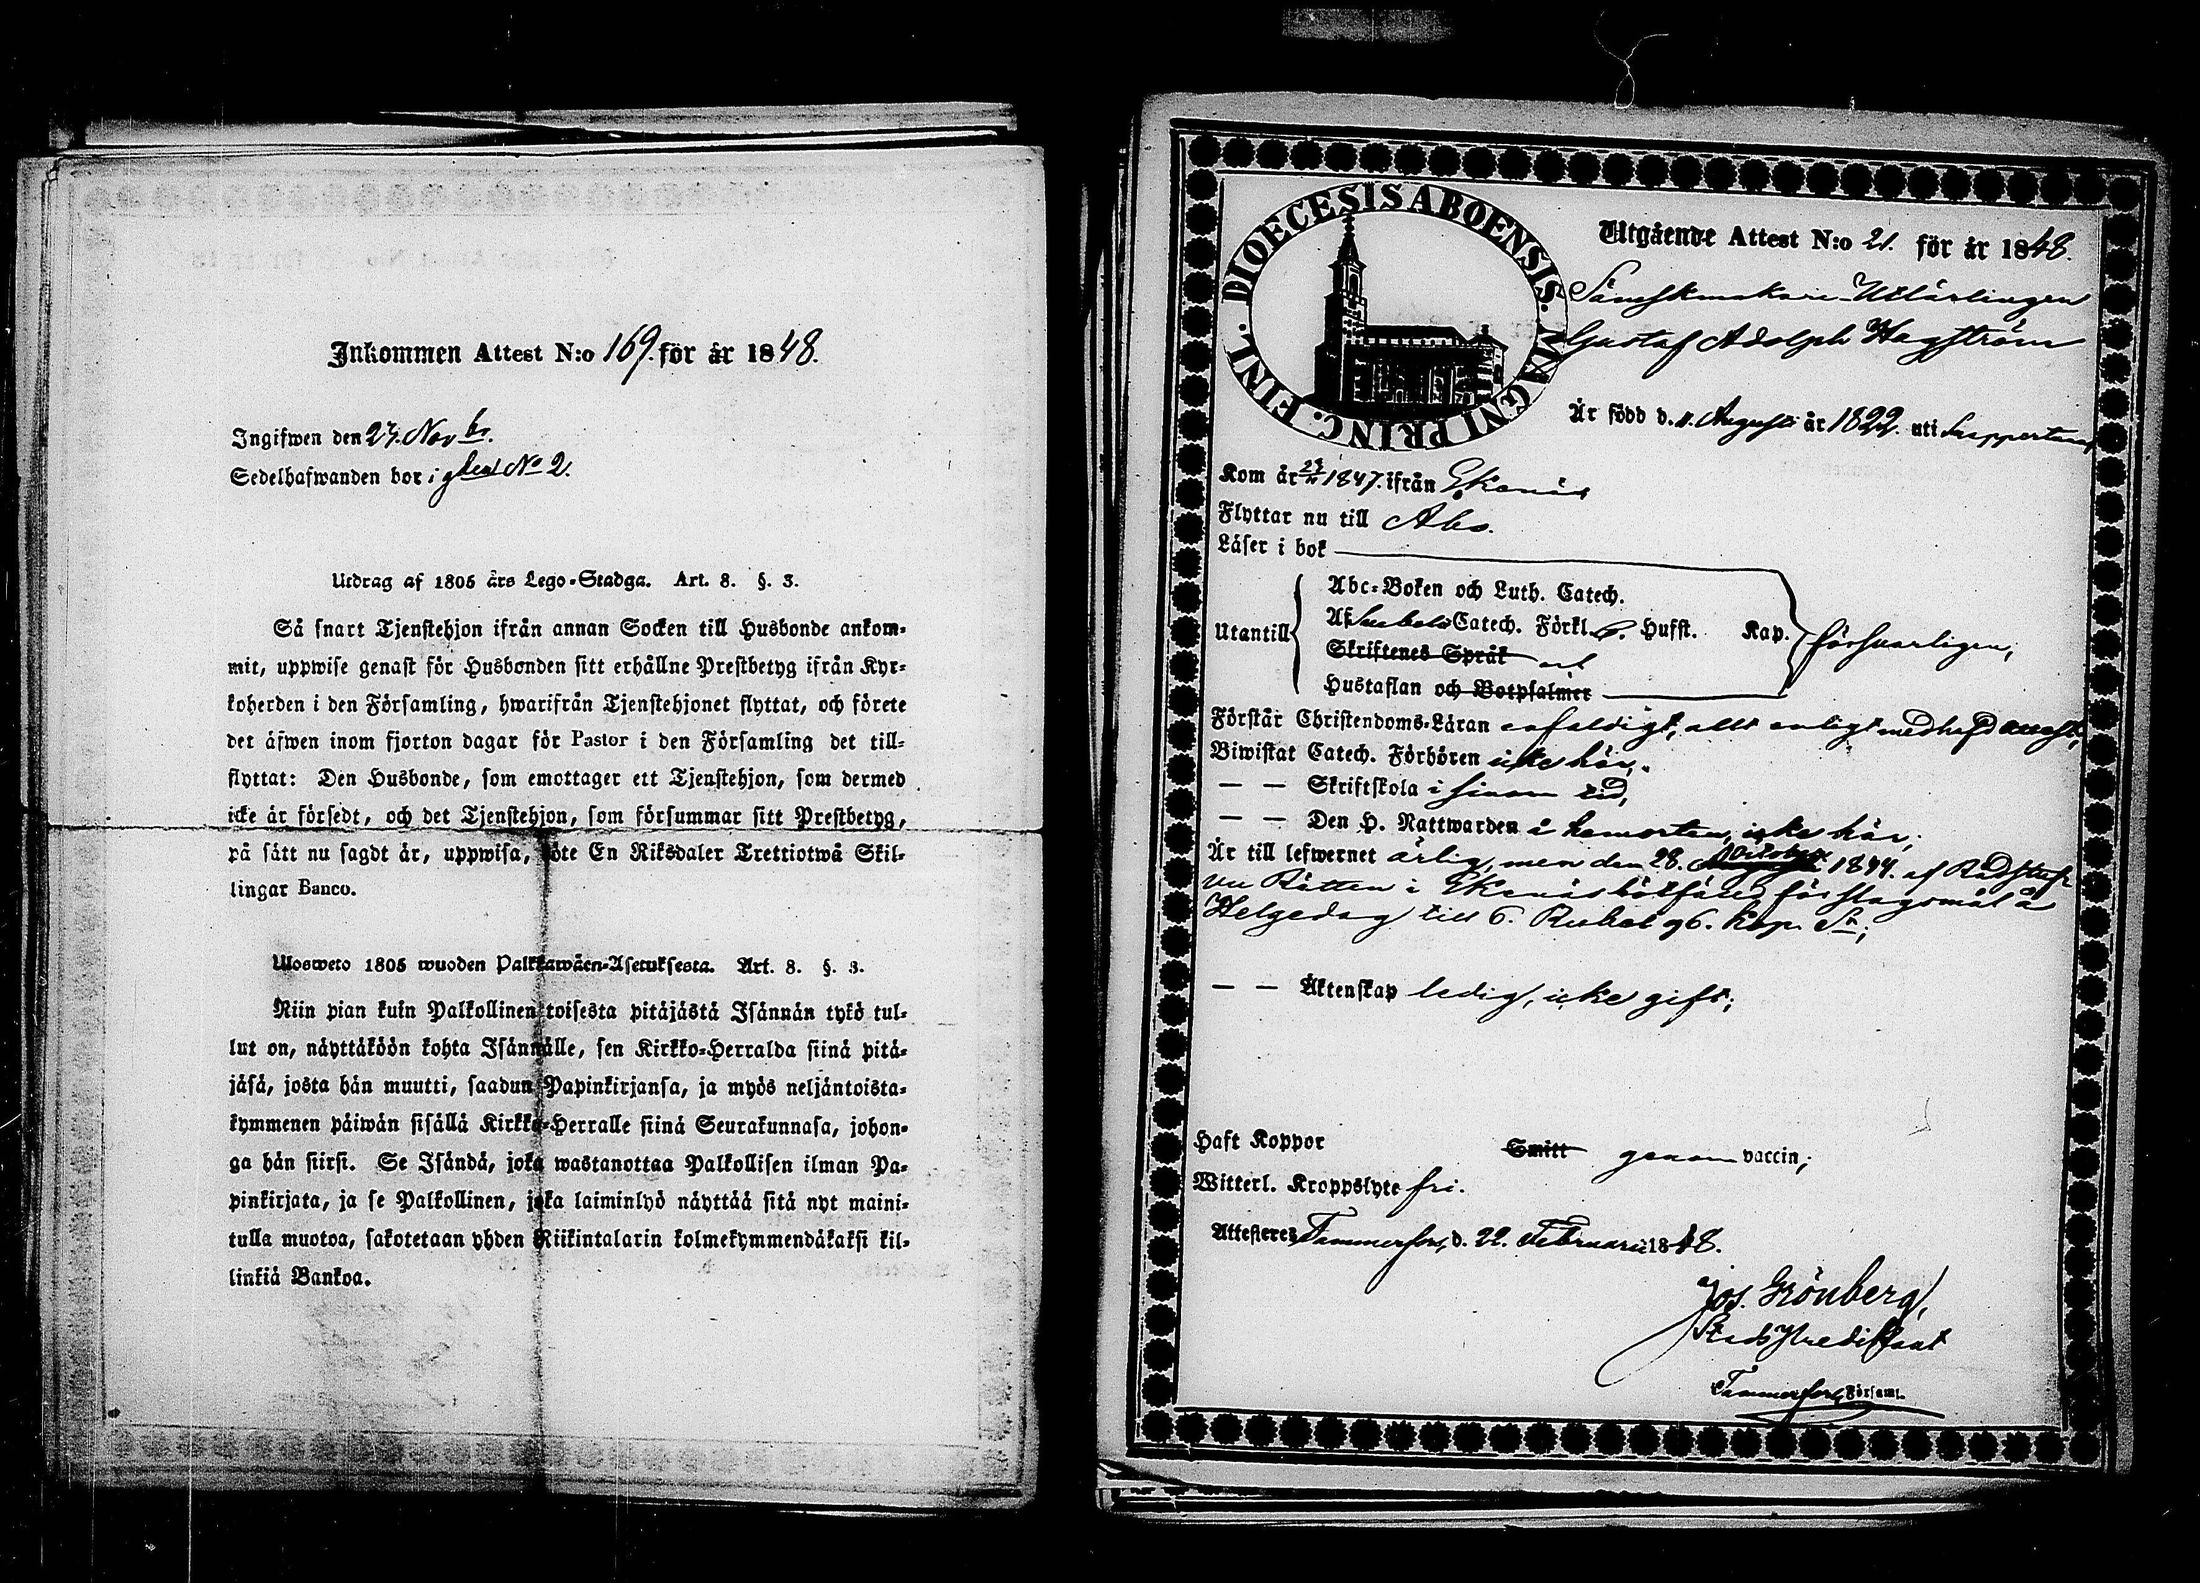 Inkommen Attest N:o 169. för år 1848.
Ingifwen den 27. Novbr.
Sedelhafwanden bor i No 2.
Utdrag af 1805 års Lego-Stadga. Art. 8. §. 3.
Så snart Tjenstehjon ifrån annan Socken till Husbonde ankom-
mit, uppwise genast för Husbonden sitt erhållne Prestbetyg ifrån Kyr-
koherden i den Församling, hwarifrån Tjenstehjonet flyttat, och förete
det äfwen inom fjorton dagar för Pastor i den Församling det till-
flyttat: Den Husbonde, som emottager ett Tjenstehjon, som dermed
icke är försedt, och det Tjenstehjon, som försummar sitt Prestbetyg,
på sätt nu sagdt är, uppwisa, böte En Riksdaler Trettiotwå Skil-
lingar Banco.
Ulosweto 1805 wuoden Palkkawäen-Asetuksesta. Art. 8. §. 3.
Niin pian kuin Palkollinen toisesta pitäjästä Isännän tykö tul-
lut on, näyttäköön kohta Isännälle, sen Kirkko-Herralda siinä pitä-
jäsä, josta hän muutti, saadun Papinkirjansa, ja myös neljäntoista-
kymmenen päiwän sisällä Kirkko-Herralle siinä Seurakunnasa, johon-
ga hän siirsi. Se Isändä, joka wastanottaa Palkollisen ilman Pa-
pinkirjata, ja se Palkollinen, joka laiminlyö näyttää sitä nyt maini-
tulla muotoa, sakotetaan yhden Riikintalarin kolmekymmendäkaksi kil-
linkiä Bankoa.
DIOECESIS ABOENSIS. MAGNI PRINC. FINL.
Utgående Attest N:o 21. för år 1848.
Sämskmakare-Utlärlingen
Gustaf Adolph Hagström
Är född d. 11. Augusti år 1822. uti
Kom år 1847. ifrån Ekenäs
Flyttar nu till Åbo.
Läser i bok
Utantill
Abc-Boken och Luth. Catech.
Af Svebelii Catech. Förkl. Hufst. Kap. försvarligen,
Skriftenes Språk och
Hustaflan och Botpsalmer
Förstår Christendoms-Läran enfaldigt, allt enligt medhafd attest,
Biwistat Catech. Förhören icke här,
— — Skriftskola i sinom tid,
— — Den H. Nattwarden å hemorten, icke här;
Är till lefwernet ärlig, men den 28. October 1844. af Rådstuf-
vu Rätten i Ekenäs bötfäld för slagsmål å
Helgedag till 6. Rubel 96. kop. Sr;
— — Äktenskap ledig, icke gift;
Haft Koppor Smitt genom vaccin;
Witterl. Kroppslyte fri.
Attesteres Tammerfors, d. 22. Februarii 1848.
Jos. Grönberg,
Stads Predikant
Tammerfors Församl.